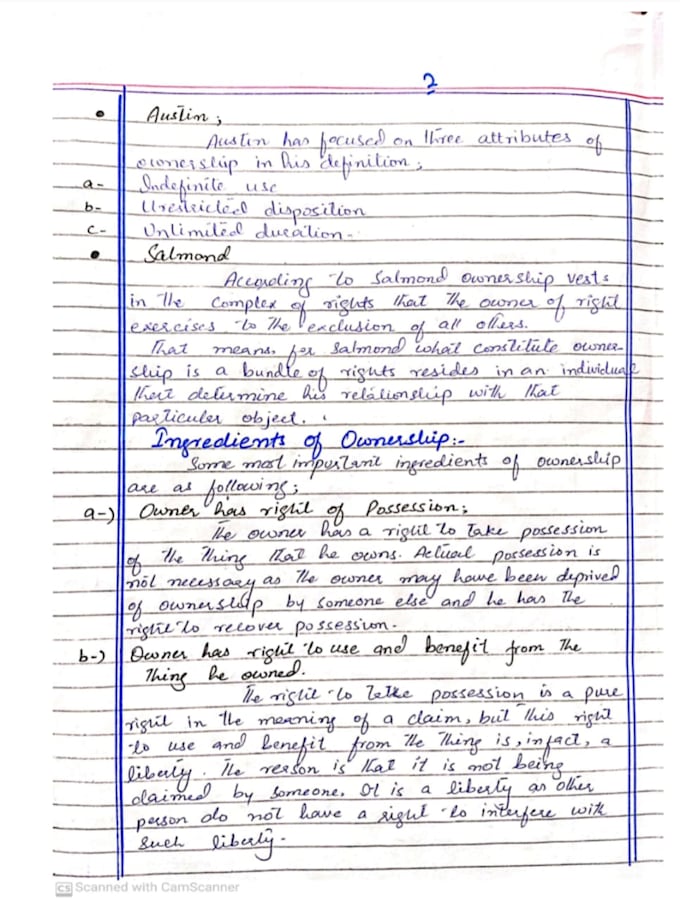 2
• Austin;
Austin has focused on three attributes of
ownership in his definition;
a- Indefinite use
b- Unrestricted disposition
c- Unlimited duration-
• Salmond
According to Salmond ownership vests
in the complex of rights that the owner of right
exercises to the exclusion of all others.
That means, for Salmond what constitute owner-
ship is a bundle of rights resides in an individual
that determine his relationship with that
particular object.
Ingredients of Ownership:-
Some most important ingredients of ownership
are as following;
a-) Owner has right of Possession;
The owner has a right to take possession
of the thing that he owns. Actual possession is
not necessary as the owner may have been deprived
of ownership by someone else and he has the
right to recover possession.
b-) Owner has right to use and benefit from the
thing he owned.
The right to take possession is a pure
right in the meaning of a claim, but this right
to use and benefit from the thing is, infact, a
liberty. The reason is that it is not being
claimed by someone. It is a liberty as other
person do not have a right to interfere with
such liberty-
CS Scanned with CamScanner